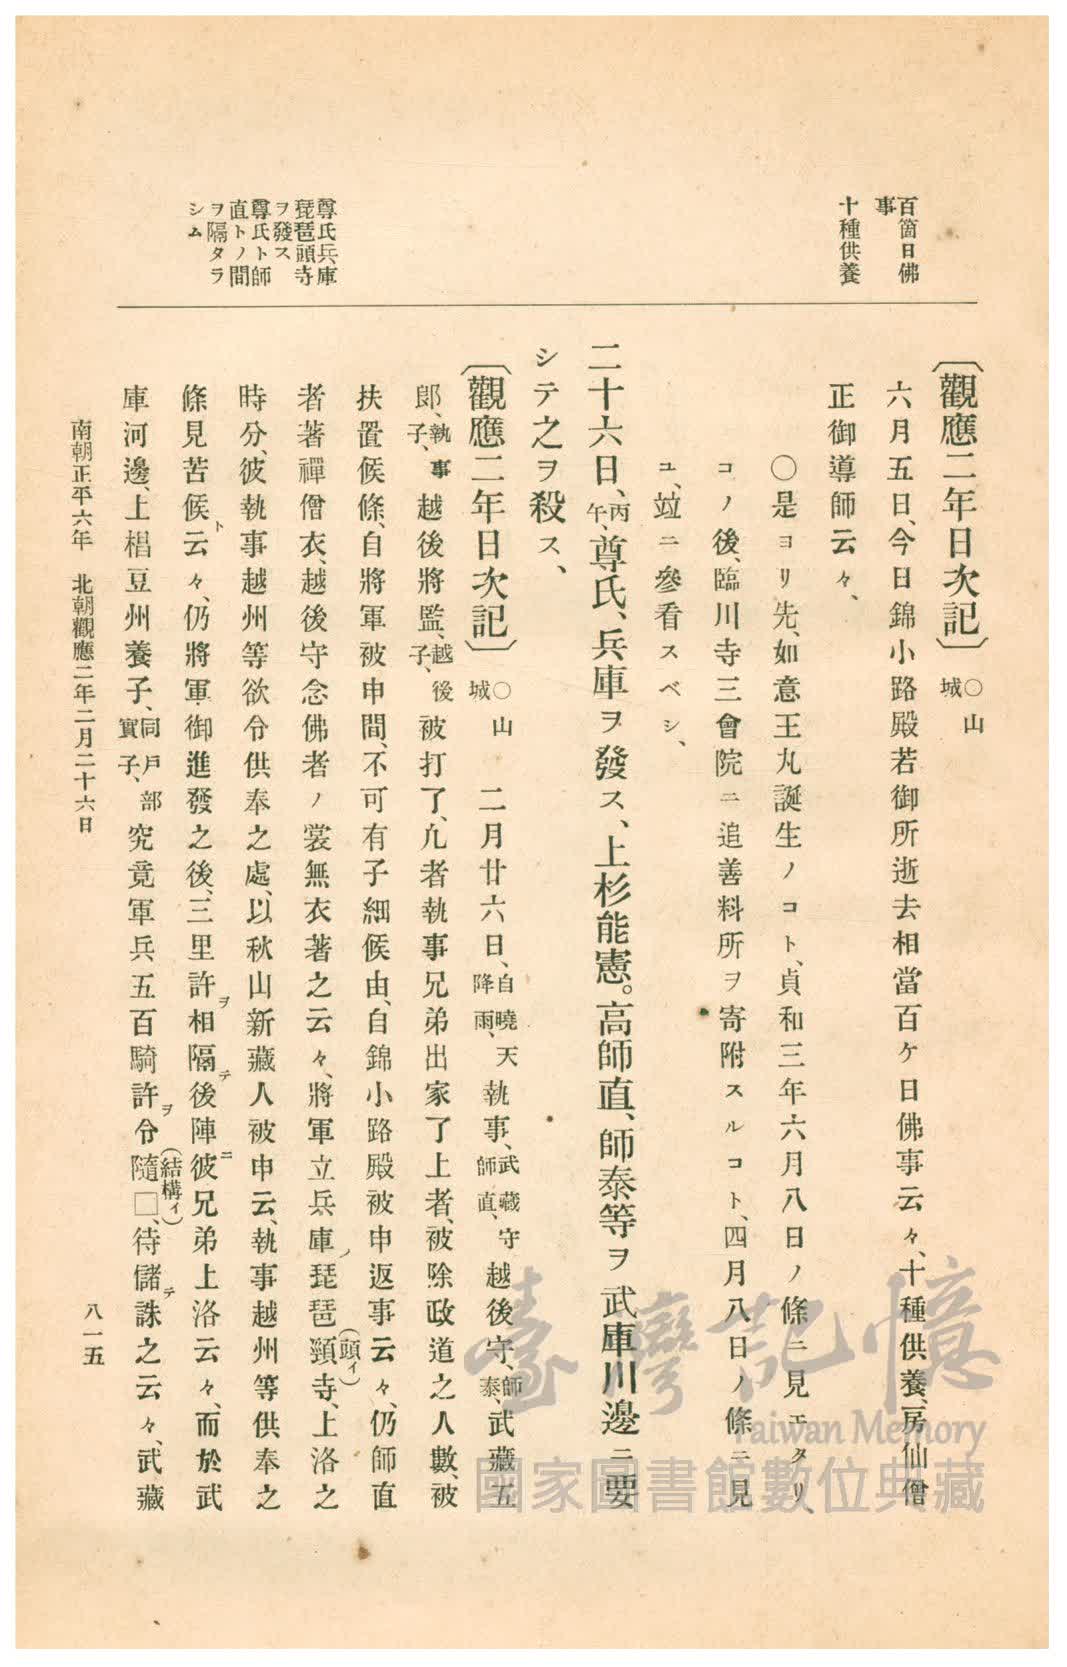 百箇日佛
事
十種供養
尊氏兵庫
琵琶頭寺
ヲ發ス
尊氏ト師
直トノ間
ヲ隔タラ
シム
〔觀應二年日次記〕○山城
六月五日、今日錦小路殿若御所逝去相當百ケ日佛事云々、十種供養、房仙僧
正御導師云々、
○是ヨリ先、如意王丸誕生ノコト、貞和三年六月八日ノ條ニ見エタリ、
コノ後、臨川寺三會院ニ追善料所ヲ寄附スルコト、四月八日ノ條ニ見
ユ、竝ニ參看スベシ、
二十六日、丙午、尊氏、兵庫ヲ發ス、上杉能憲。高師直、師泰等ヲ武庫川邊ニ要
シテ之ヲ殺ス、
〔觀應二年日次記〕○山城 二月廿六日、自曉天降雨、執事、武藏守師直、越後守、師泰、武藏五
郎、執事子、越後將監、越後子、被打了、凢者執事兄弟出家了上者、被除政道之人數、被
扶置候條、自將軍被申間、不可有子細候由、自錦小路殿被申返事云々、仍師直
者著禪僧衣、越後守念佛者ノ裳無衣著之云々、將軍立兵庫ノ琵琶頸(頭イ)寺、上洛之
時分、彼執事越州等欲令供奉之處、以秋山新藏人被申云、執事越州等供奉之
條見苦候ト云々、仍將軍御進發之後、三里許ヲ相隔テ後陣ニ彼兄弟上洛云々、而於武
庫河邊、上椙豆州養子、同戶部實子、究竟軍兵五百騎許ヲ令隨(結構イ)□、待儲テ誅之云々、武藏
南朝正平六年 北朝觀應二年二月二十六日
八一五
臺灣記憶
Taiwan Memory
國家圖書館數位典藏